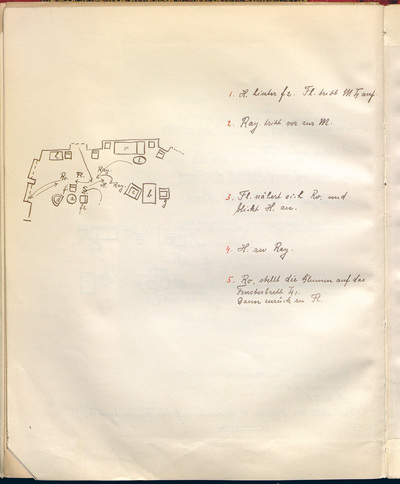 1. H. hinter f2. Fl. tritt M. auf.
2. Ray. tritt vor zur M.
3. Fl. nähert sich Ro. und
blickt H. an.
4. H. zu Ray.
5. Ro. stellt die Blumen auf das
Fensterbrett
Dann zurück zu Fl.
Ro.
Fl.
Ray
H.
Ray